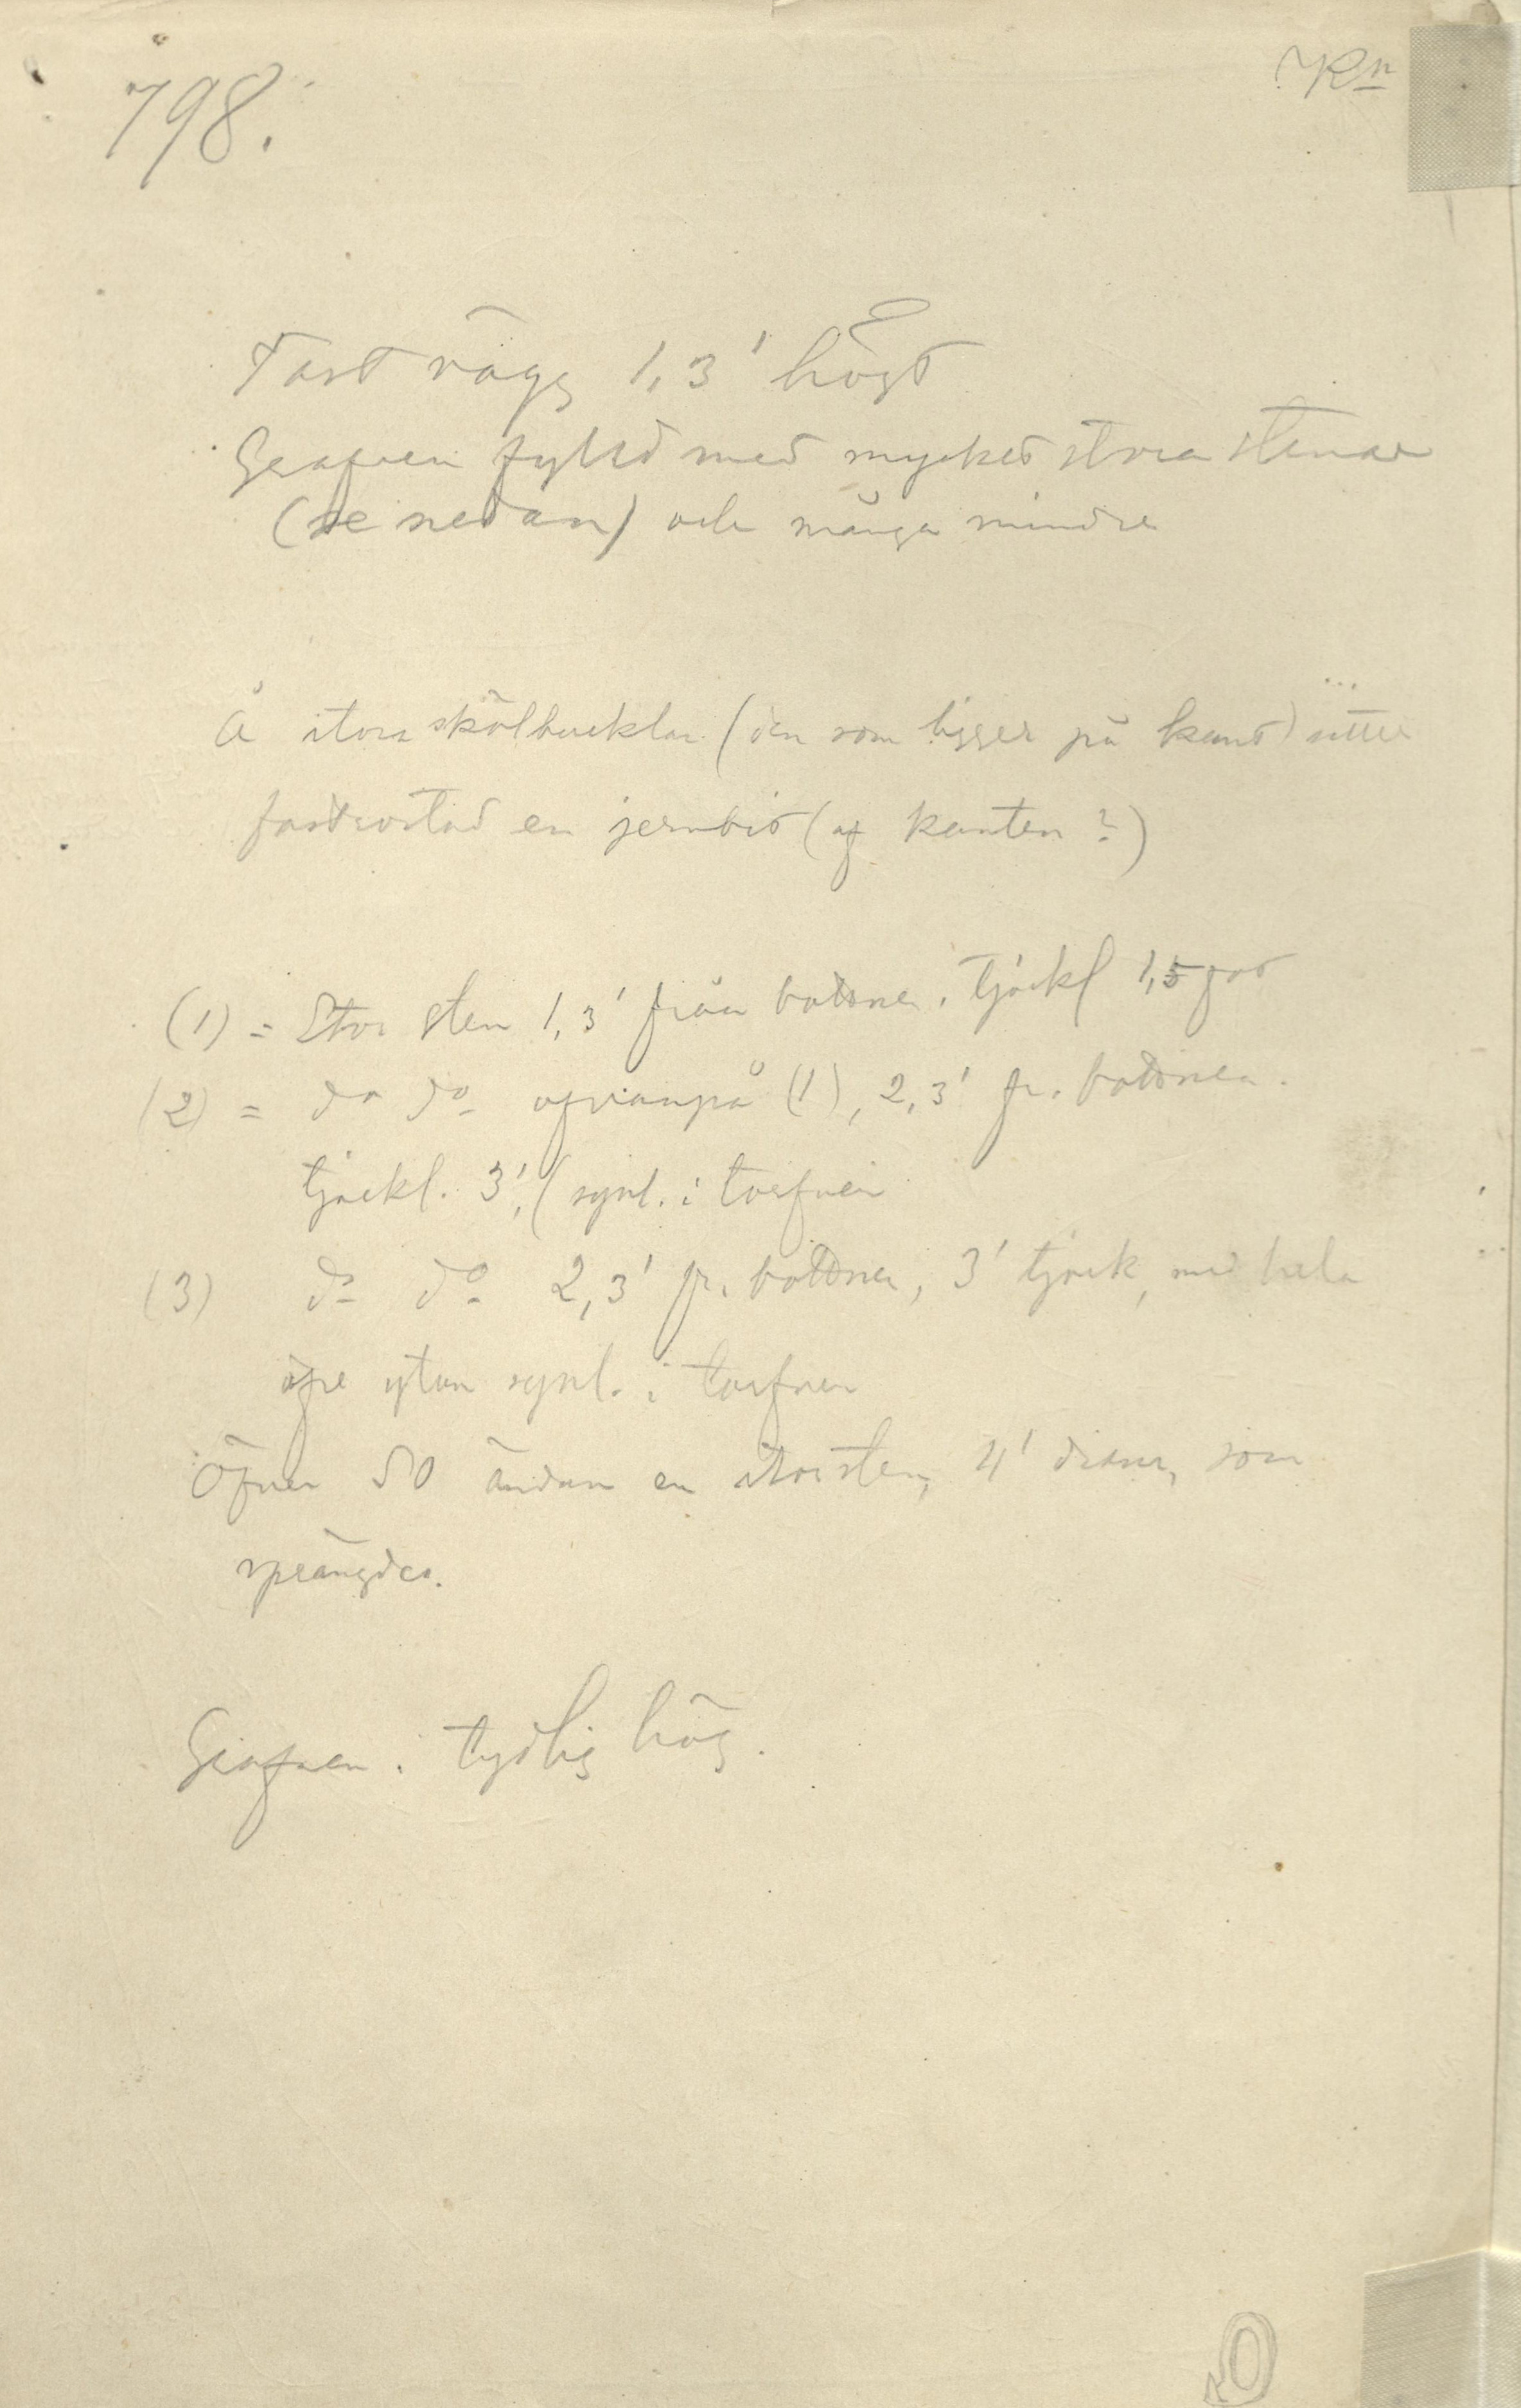 798.
Kn
Fast vägg 1,3' högt
Grafven fylld med mycket stora stenar
(se nedan) och många mindre
Å stora sköldbucklan (den som ligger på kant) sitter
fastrostad en jernbit (af kanten?)
(1) = Stor sten 1,3' från bottnen. tjockl 1,5 fot
(2) = do do ofvanpå (1), 2,3' fr. bottnen.
tjockl. 3', (synl. i torfven
(3) do do 2,3' fr. bottnen, 3' tjock, med hela
öfre ytan synl. i torfven
Öfver SO ändan en stor sten, 4' diam, som
sprängdes.
Grafven i tydlig hög.